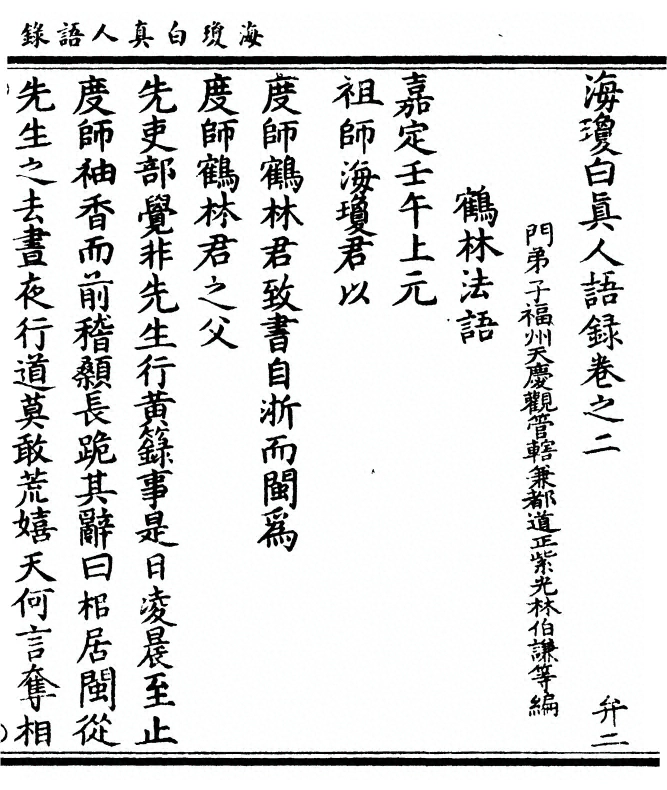 海瓊白真人語錄
海瓊白眞人語録卷之二
弁二
門弟子福州天慶觀管轄兼都道正紫光林伯謙等編
鶴林法語
嘉定壬午上元
祖師海瓊君以
度師鶴林君致書自浙而閩爲
度師鶴林君之父
先吏部覺非先生行黄籙事是日凌晨至止
度師袖香而前稽顙長跪其辭曰耜居閩從
先生之去晝夜行道莫敢荒嬉天何言奪相